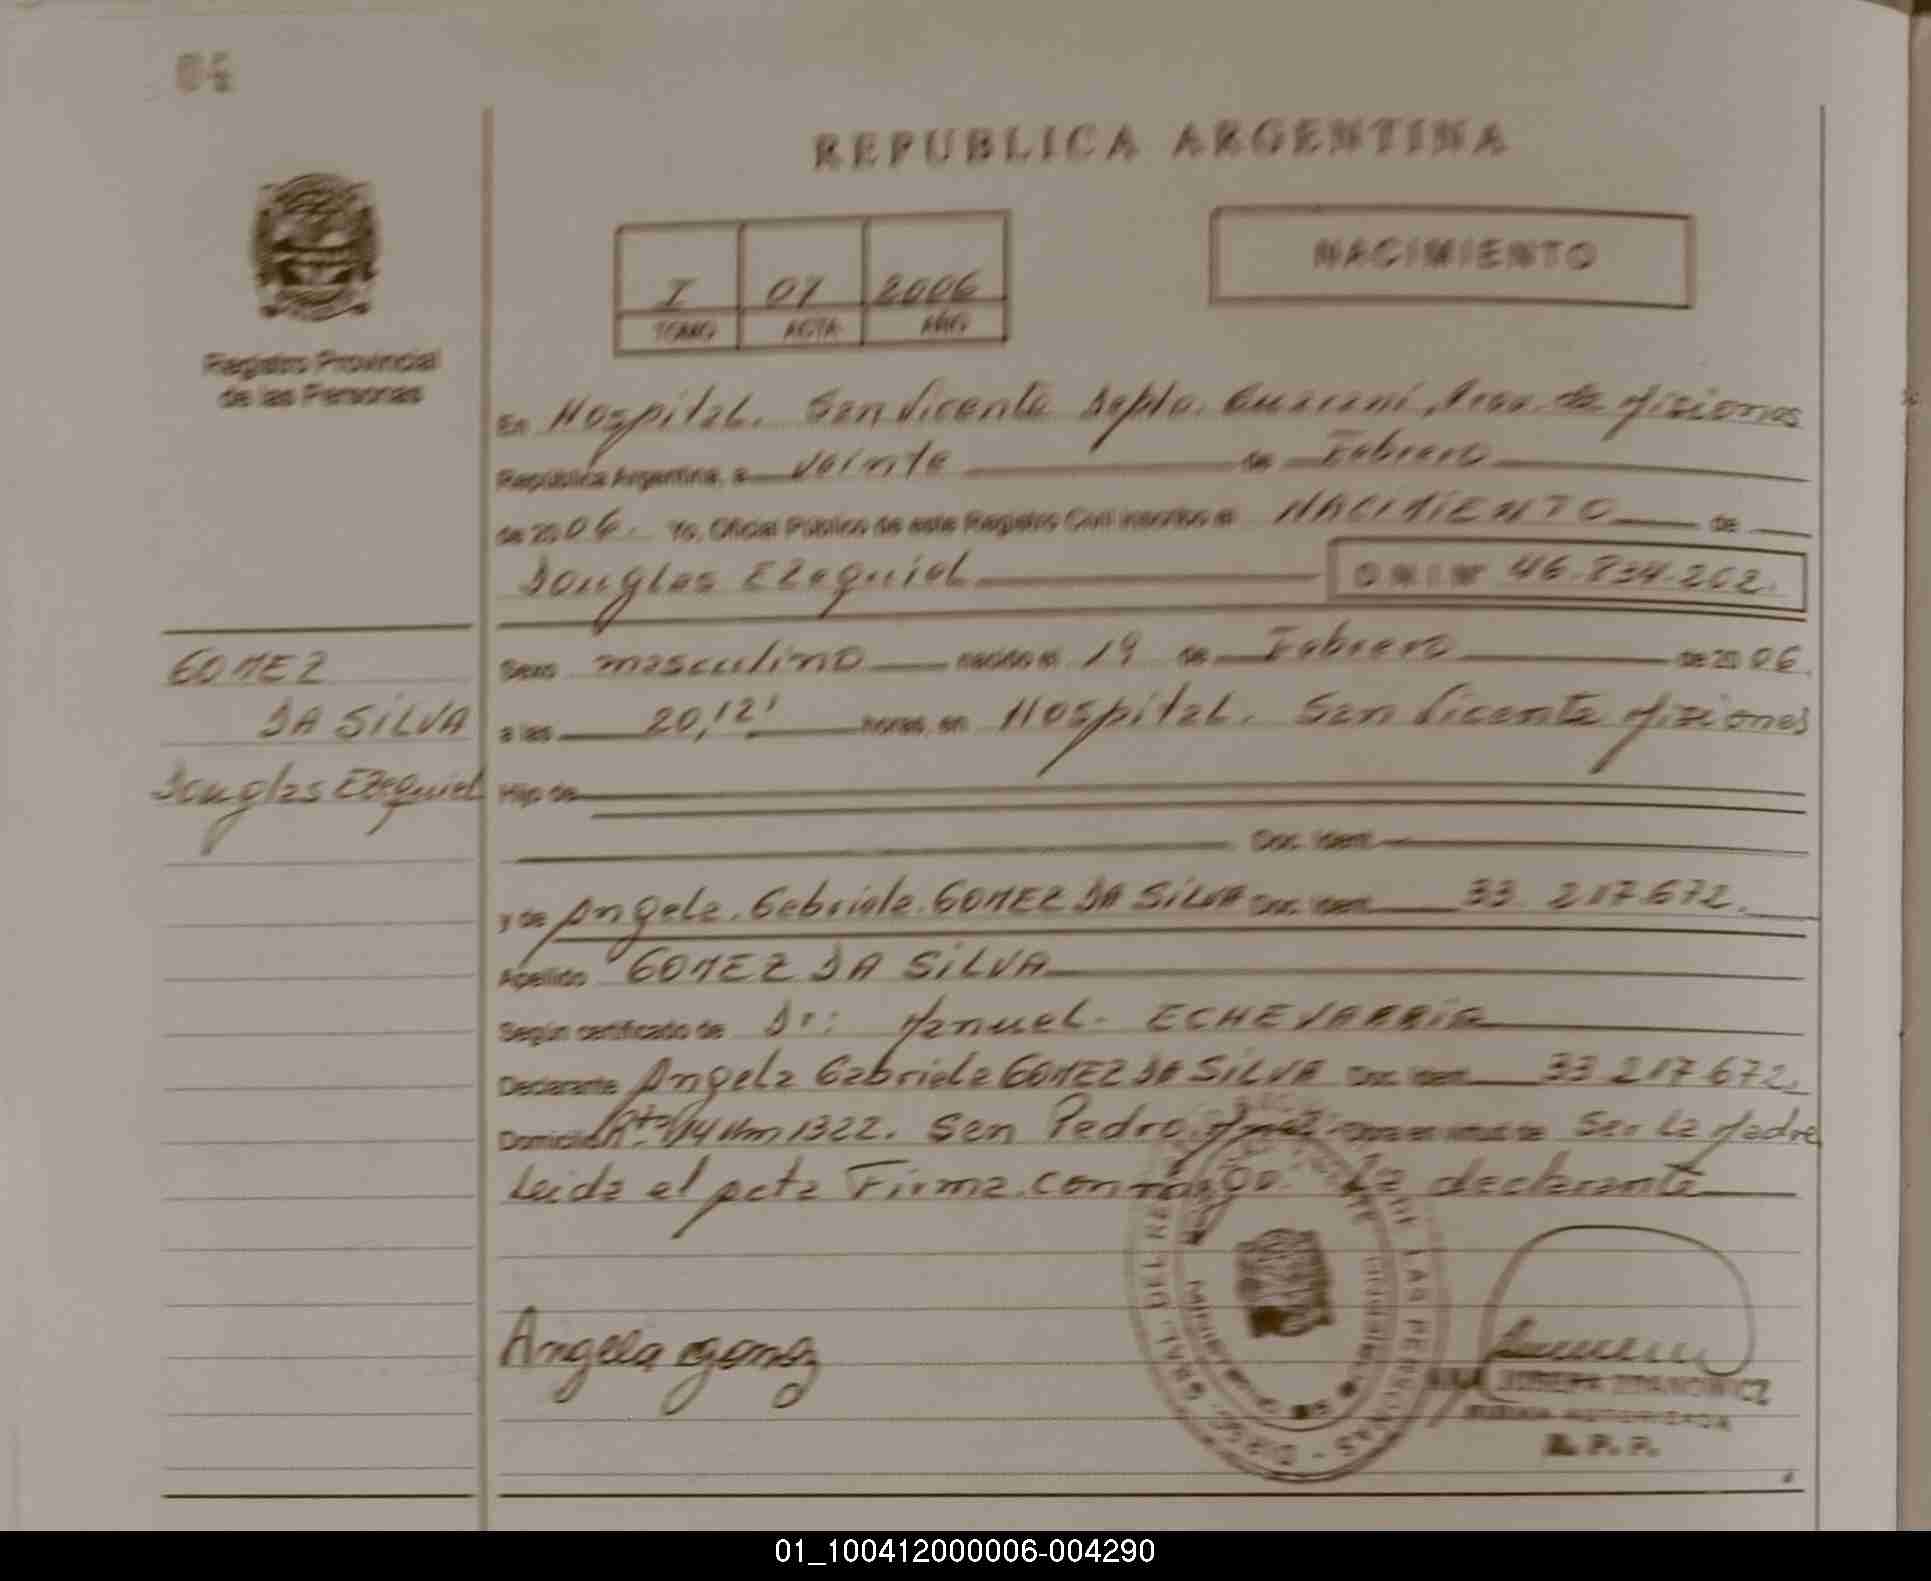 04
REPUBLICA ARGENTINA
NACIMIENTO
I 07 2006
TOMO ACTA AÑO
Registro Provincial
de las Personas
En Hospital. San Vicente Depto. Guaraní, Prov. de Misiones
República Argentina, a veinte de Febrero
de 2006. Yo, Oficial Público de este Registro Civil inscribo el NACIMIENTO de
Douglas Ezequiel D N I Nº 46.834.262.
GOMEZ
DA SILVA
Douglas Ezequiel
Sexo masculino nacido el 19 de Febrero de 2006.
a las 20,12' horas, en Hospital. San Vicente Misiones
Hijo de
Doc. Ident.
y de Angela. Gabriela. GOMEZ DA SILVA Doc. Ident. 33 217.672.
Apellido GOMEZ DA SILVA
Según certificado de Dr: Manuel. ECHEVARRIA
Declarante Angela Gabriela GOMEZ DA SILVA Doc. Ident. 33 217 672.
Domicilio Rta 14 Km 1322. San Pedro Mnes. Obra en virtud de Ser La Madre
Leida el acta Firma conmigo. La declarante
Angela Gomez
DE LAS PERSONAS
ZDANOWICZ
FIRMA AUTORIZADA
R. P. P.
01_100412000006-004290